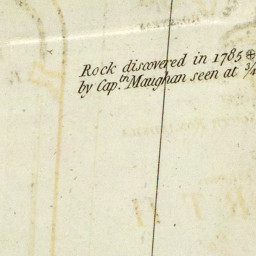 Rock discovered in 1785 ⊕
by Cap.tn Maughan seen at ¾